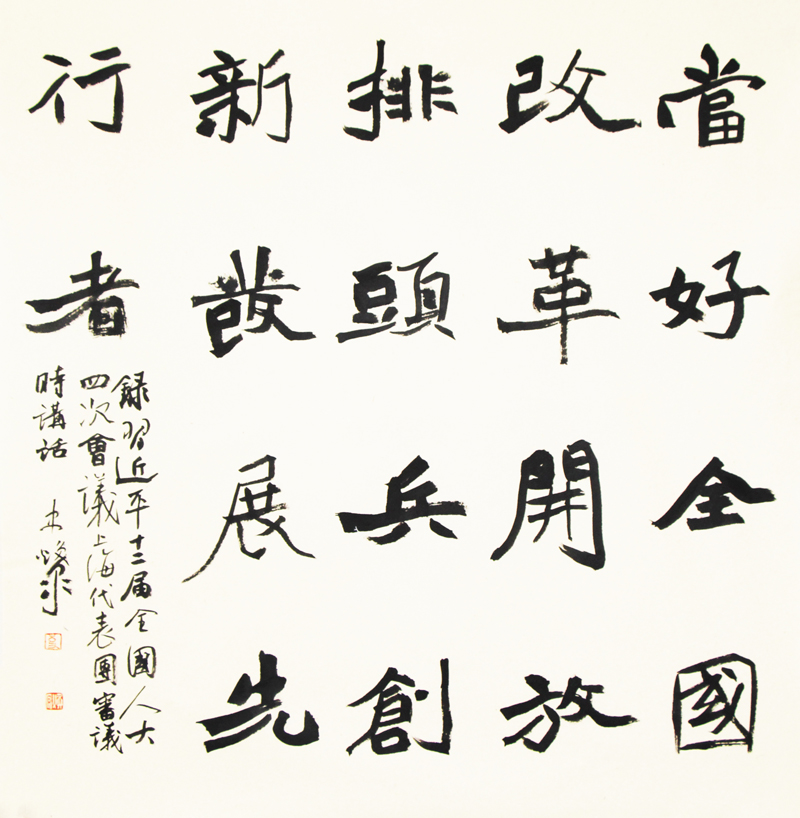 當好全國
改革開放
排頭兵創
新發展先
行者
錄習近平十二届全國人大
四次會議上海代表團審議
時講話